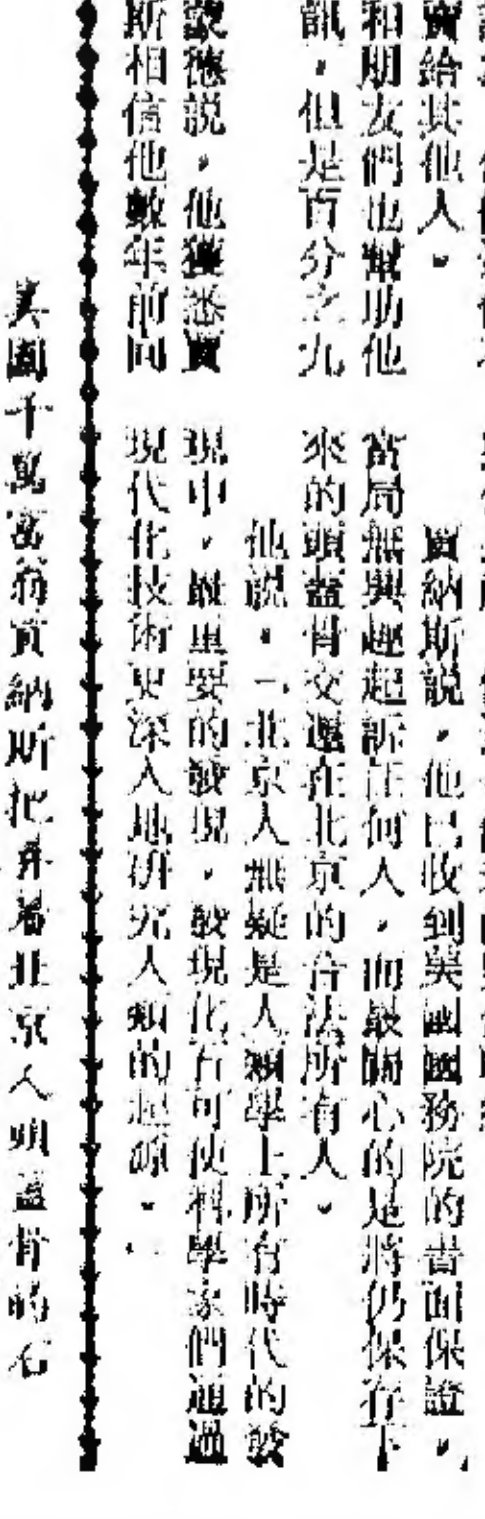 賣給其他人。
和朋友們也幫助他
訊,但是百分之九
蒙德説,他獲悉賈
斯相信他數年前向
賈納斯説,他已收到美國國務院的書面保證,
當局無興趣起訴任何人,而最關心的是將仍保存下
來的頭蓋骨交還在北京的合法所有人。
他説,「北京人無疑是人類學上所有時代的發
現中,最重要的發現,發現化石可使科學家們通過
現代化技術更深入地研究人類的起源。」
美國千萬富翁賈納斯把弄着北京人頭蓋骨的石